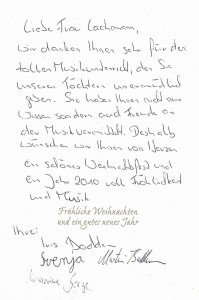 Liebe Frau Lachmann,
wir danken Ihnen sehr für den
tollen Musikunterricht, den Sie
unseren Töchtern unermüdlich
geben. Sie haben Ihnen nicht nur
Wissen sondern auch Freude an
der Musik vermittelt. Deshalb
wünschen wir Ihnen von Herzen
ein schönes Weihnachtsfest und
ein Jahr 2010 voll Fröhlichkeit
und Musik
Fröhliche Weihnachten
und ein gutes neues Jahr
Ihre:
Svenja